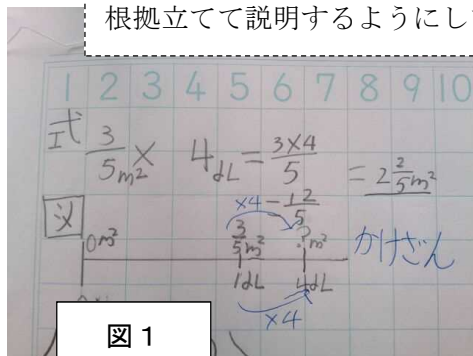 根拠立てて説明するようにし
1 2 3 4 5 6 7 8 9 10
式 3/5 m² × 4dL = 3×4/5
= 12/5 = 2 2/5 m²
図
×4
0m² 3/5 m² ? m² かけざん
1dL 4dL
×4
図1